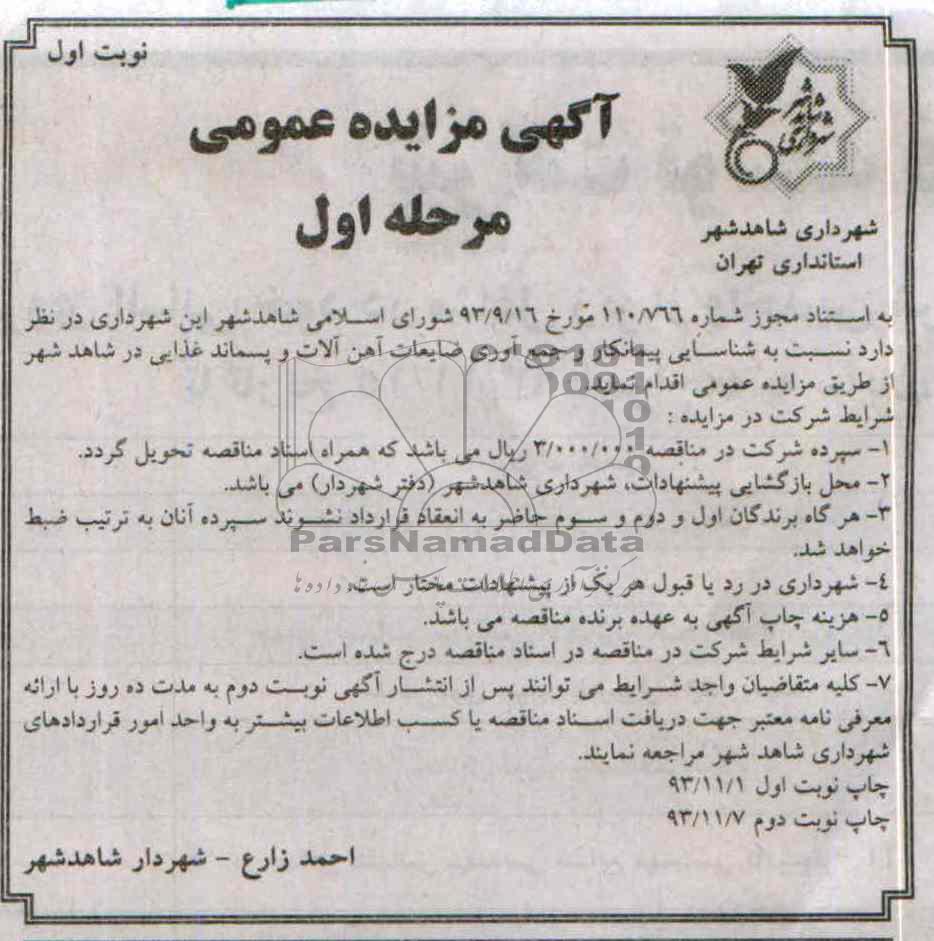 نوبت اول
آگهی مزایده عمومی
مرحله اول
شهرداری شاهدشهر
استانداری تهران
به استناد مجوز شماره ۱۱۰/۷۶۶ مورخ ۹۳/۹/۱۶ شورای اسلامی شاهدشهر این شهرداری در نظر
دارد نسبت به شناسایی پیمانکار و جمع آوری ضایعات آهن آلات و پسماند غذایی در شاهد شهر
از طریق مزایده عمومی اقدام نماید.
شرایط شرکت در مزایده :
۱- سپرده شرکت در مناقصه ۳/۰۰۰/۰۰۰ ریال می باشد که همراه اسناد مناقصه تحویل گردد.
۲- محل بازگشایی پیشنهادات، شهرداری شاهدشهر (دفتر شهردار) می باشد.
۳- هر گاه برندگان اول و دوم و سوم حاضر به انعقاد قرارداد نشوند سپرده آنان به ترتیب ضبط
خواهد شد.
۴- شهرداری در رد یا قبول هر یک از پیشنهادات مختار است.
۵- هزینه چاپ آگهی به عهده برنده مناقصه می باشد.
۶- سایر شرایط شرکت در مناقصه در اسناد مناقصه درج شده است.
۷- کلیه متقاضیان واجد شرایط می توانند پس از انتشار آگهی نوبت دوم به مدت ده روز با ارائه
معرفی نامه معتبر جهت دریافت اسناد مناقصه یا کسب اطلاعات بیشتر به واحد امور قراردادهای
شهرداری شاهد شهر مراجعه نمایند.
چاپ نوبت اول ۹۳/۱۱/۱
چاپ نوبت دوم ۹۳/۱۱/۷
احمد زارع - شهردار شاهدشهر
ParsNamadData